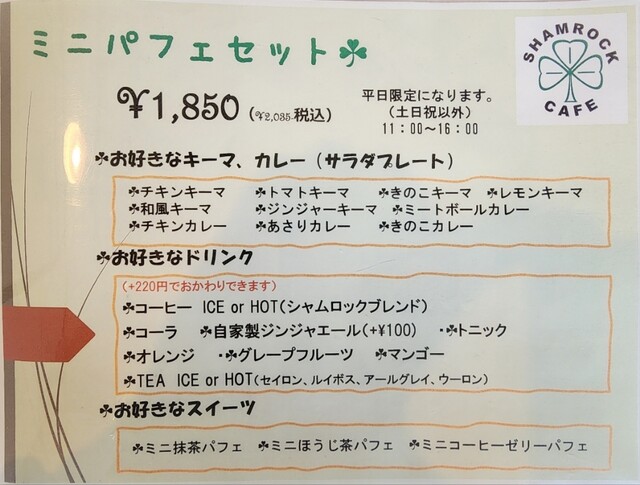 ミニパフェセット☘
SHAMROCK
CAFE
¥1,850(¥2,035税込)
平日限定になります。
(土日祝以外)
11：00～16：00
☘お好きなキーマ、カレー（サラダプレート）
☘チキンキーマ ☘トマトキーマ ☘きのこキーマ ☘レモンキーマ
☘和風キーマ ☘ジンジャーキーマ ☘ミートボールカレー
☘チキンカレー ☘あさりカレー ☘きのこカレー
☘お好きなドリンク
(+220円でおかわりできます)
☘コーヒー ICE or HOT(シャムロックブレンド)
☘コーラ ☘自家製ジンジャエール(+¥100) ・☘トニック
☘オレンジ ・☘グレープフルーツ ☘マンゴー
☘TEA ICE or HOT(セイロン、ルイボス、アールグレイ、ウーロン)
☘お好きなスイーツ
☘ミニ抹茶パフェ ☘ミニほうじ茶パフェ ☘ミニコーヒーゼリーパフェ